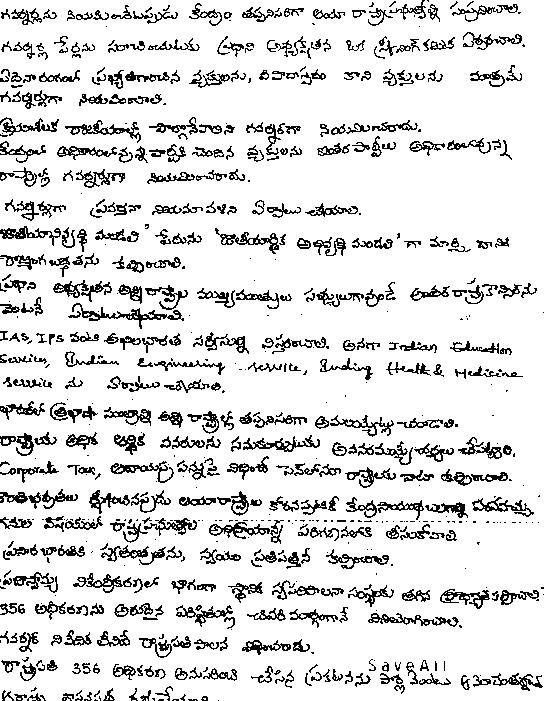 గవర్నర్లను నియమించేటప్పుడు కేంద్రం తప్పనిసరిగా ఆయా రాష్ట్రప్రభుత్వాల్ని సంప్రదించాలి.
గవర్నర్ల పేర్లను సూచించుటకు ప్రధాని అధ్యక్షతన ఒక స్క్రీనింగ్ కమిటీ ఏర్పరచాలి.
ఏదైనా రంగంలో ప్రఖ్యాతిగాంచిన వ్యక్తులను, వివాదాస్పదం కాని వ్యక్తులను మాత్రమే
గవర్నర్లుగా నియమించాలి.
క్రియాశీలక రాజకీయాల్లో పాల్గొనేవారిని గవర్నర్‌గా నియమించరాదు.
కేంద్రంలో అధికారంలోవున్న పార్టీకి చెందిన వ్యక్తులను ఇతర పార్టీలు అధికారంలోవున్న
రాష్ట్రాల్లో గవర్నర్లుగా నియమించరాదు.
గవర్నర్లుగా ప్రవర్తనా నియమావళిని ఏర్పాటు చేయాలి.
'జాతీయాభివృద్ధి మండలి' పేరును 'జాతీయార్థిక అభివృద్ధి మండలి' గా మార్చి దానికి
రాజ్యాంగబద్ధతను కల్పించాలి.
ప్రధాని అధ్యక్షతన అన్ని రాష్ట్రాల ముఖ్యమంత్రులు సభ్యులుగావుండే అంతర రాష్ట్రకౌన్సిల్‌ను
వెంటనే ఏర్పాటుచేయాలి.
IAS, IPS వంటి అఖిలభారత సర్వీసుల్ని విస్తరించాలి. అనగా Indian Education
Service, Indian Engineering Service, Indian Health & Medicine
Service ను ఏర్పాటు చేయాలి.
భారత్‌లో త్రిభాషా సూత్రాన్ని అన్ని రాష్ట్రాల్లో తప్పనిసరిగా అమలయ్యేట్లు చూడాలి.
రాష్ట్రాలకు అధిక ఆర్థిక వనరులను సమకూర్చుటకు అవసరమయ్యే చర్యలు చేపట్టాలి.
Corporate Tax, ఆదాయపు పన్నుపై విధించే సెస్‌లోనూ రాష్ట్రాలకు వాటా కల్పించాలి.
శాంతిభద్రతలు క్షీణించినప్పుడు ఆయారాష్ట్రాలు కోరినప్పటికీ కేంద్రసాయుధబలగాల్ని పంపవచ్చు
గనుల విషయంలో రాష్ట్రప్రభుత్వాల అభిప్రాయాన్ని పరిగణనలోకి తీసుకోవాలి
ప్రసార భారతికి స్వతంత్రతను, స్వయం ప్రతిపత్తిని కల్పించాలి.
ప్రజాస్వామ్య వికేంద్రీకరణలో భాగంగా స్థానిక స్వపరిపాలనా సంస్థలకు తగిన కల్పించాలి
356 అధికరణను అరుదైన పరిస్థితుల్లో చివరి మార్గంగానే వినియోగించాలి.
గవర్నర్ నివేదిక లేనిదే రాష్ట్రపతి పాలన విధించరాదు.
SaveAll
రాష్ట్రపతి 356 అధికరణ అనుసరించి చేసిన ప్రకటనను పార్లమెంటు